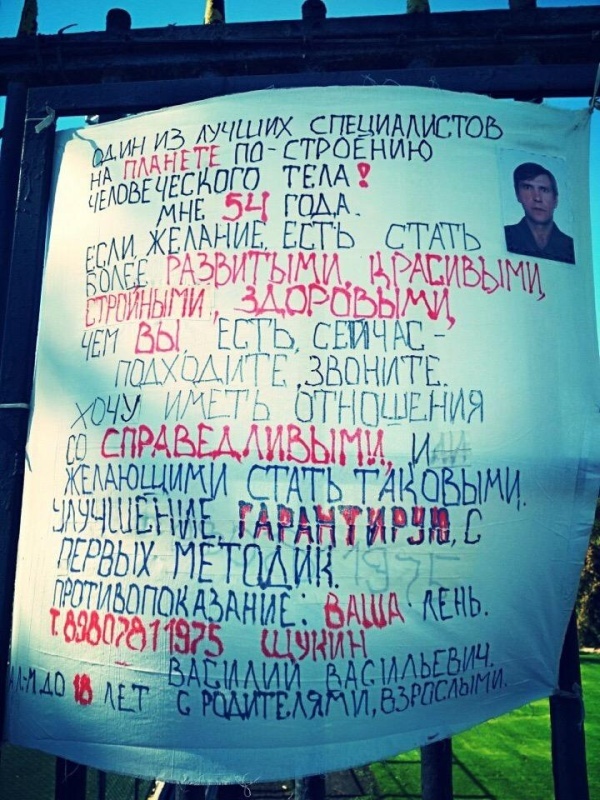 ОДИН ИЗ ЛУЧШИХ СПЕЦИАЛИСТОВ
НА ПЛАНЕТЕ ПО-СТРОЕНИЮ
ЧЕЛОВЕЧЕСКОГО ТЕЛА!
МНЕ 54 ГОДА.
ЕСЛИ, ЖЕЛАНИЕ, ЕСТЬ СТАТЬ
БОЛЕЕ РАЗВИТЫМИ, КРАСИВЫМИ,
СТРОЙНЫМИ, ЗДОРОВЫМИ,
ЧЕМ ВЫ ЕСТЬ, СЕЙЧАС -
ПОДХОДИТЕ, ЗВОНИТЕ.
ХОЧУ ИМЕТЬ ОТНОШЕНИЯ
СО СПРАВЕДЛИВЫМИ, ИЛИ
ЖЕЛАЮЩИМИ СТАТЬ ТАКОВЫМИ.
УЛУЧШЕНИЕ, ГАРАНТИРУЮ, С
ПЕРВЫХ МЕТОДИК.
ПРОТИВОПОКАЗАНИЕ: ВАША ЛЕНЬ.
Т. 89807811975 ЩУКИН
ВАСИЛИЙ ВАСИЛЬЕВИЧ.
ДО 18 ЛЕТ С РОДИТЕЛЯМИ, ВЗРОСЛЫМИ.